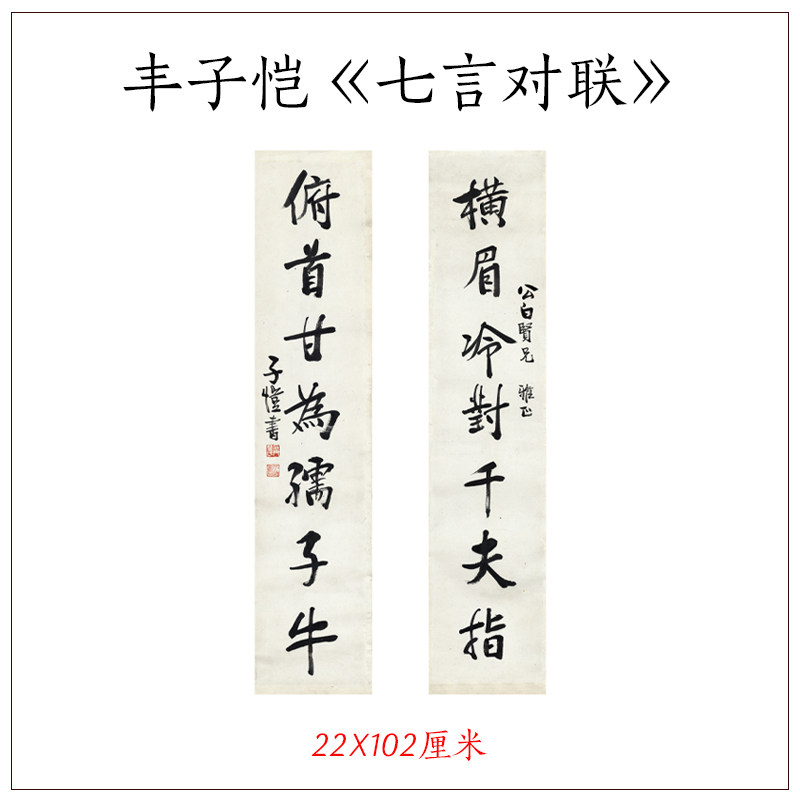 丰子恺《七言对联》
横眉冷對千夫指
公白賢兄 雅正
俯首甘為孺子牛
子愷書
22X102厘米